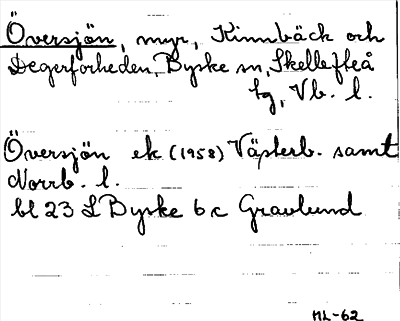 Översjön, myr, Kinnbäck och
Degerforheden, Byske sn, Skellefteå
tg, Vb. l.
Översjön ek (1958) Västerb. samt
Norrb. l.
bl 23 L Byske 6 c Gravlund
ML-62